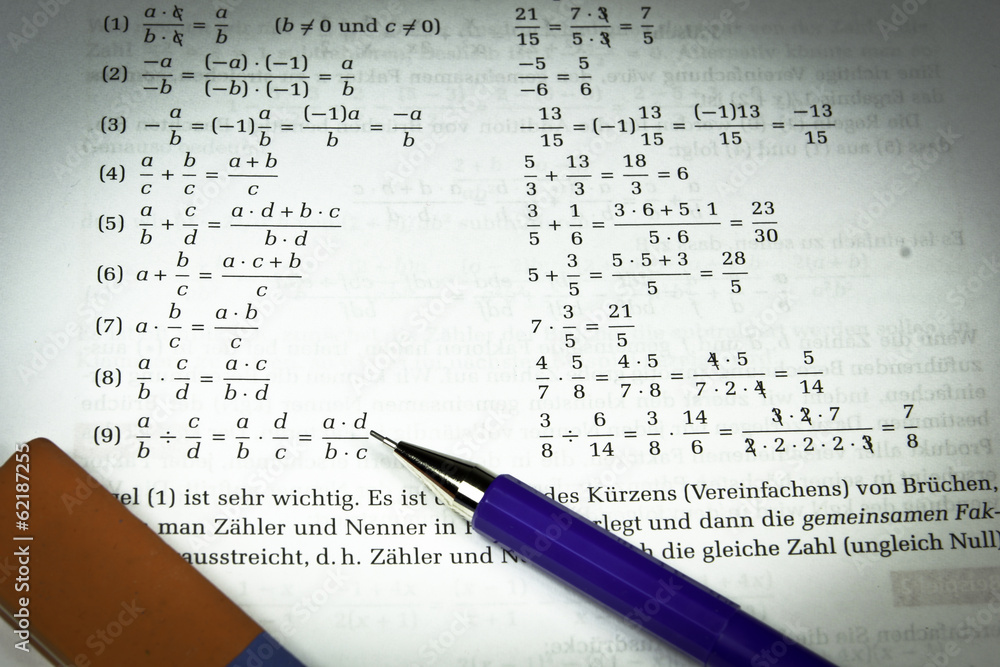 (1) a · c / b · c = a / b (b ≠ 0 und c ≠ 0) 21 / 15 = 7 · 3 / 5 · 3 = 7 / 5
(2) −a / −b = (−a) · (−1) / (−b) · (−1) = a / b −5 / −6 = 5 / 6
(3) − a / b = (−1) a / b = (−1)a / b = −a / b − 13 / 15 = (−1) 13 / 15 = (−1)13 / 15 = −13 / 15
(4) a / c + b / c = a + b / c 5 / 3 + 13 / 3 = 18 / 3 = 6
(5) a / b + c / d = a · d + b · c / b · d 3 / 5 + 1 / 6 = 3 · 6 + 5 · 1 / 5 · 6 = 23 / 30
(6) a + b / c = a · c + b / c 5 + 3 / 5 = 5 · 5 + 3 / 5 = 28 / 5
(7) a · b / c = a · b / c 7 · 3 / 5 = 21 / 5
(8) a / b · c / d = a · c / b · d 4 / 7 · 5 / 8 = 4 · 5 / 7 · 8 = 4 · 5 / 7 · 2 · 4 = 5 / 14
(9) a / b ÷ c / d = a / b · d / c = a · d / b · c 3 / 8 ÷ 6 / 14 = 3 / 8 · 14 / 6 = 3 · 2 · 7 / 2 · 2 · 2 · 2 · 3 = 7 / 8
(1) ist sehr wichtig. Es ist des Kürzens (Vereinfachens) von Brüchen,
man Zähler und Nenner in und dann die gemeinsamen Fak-
ausstreicht, d. h. Zähler und die gleiche Zahl (ungleich Null)
Adobe Stock | #62187255